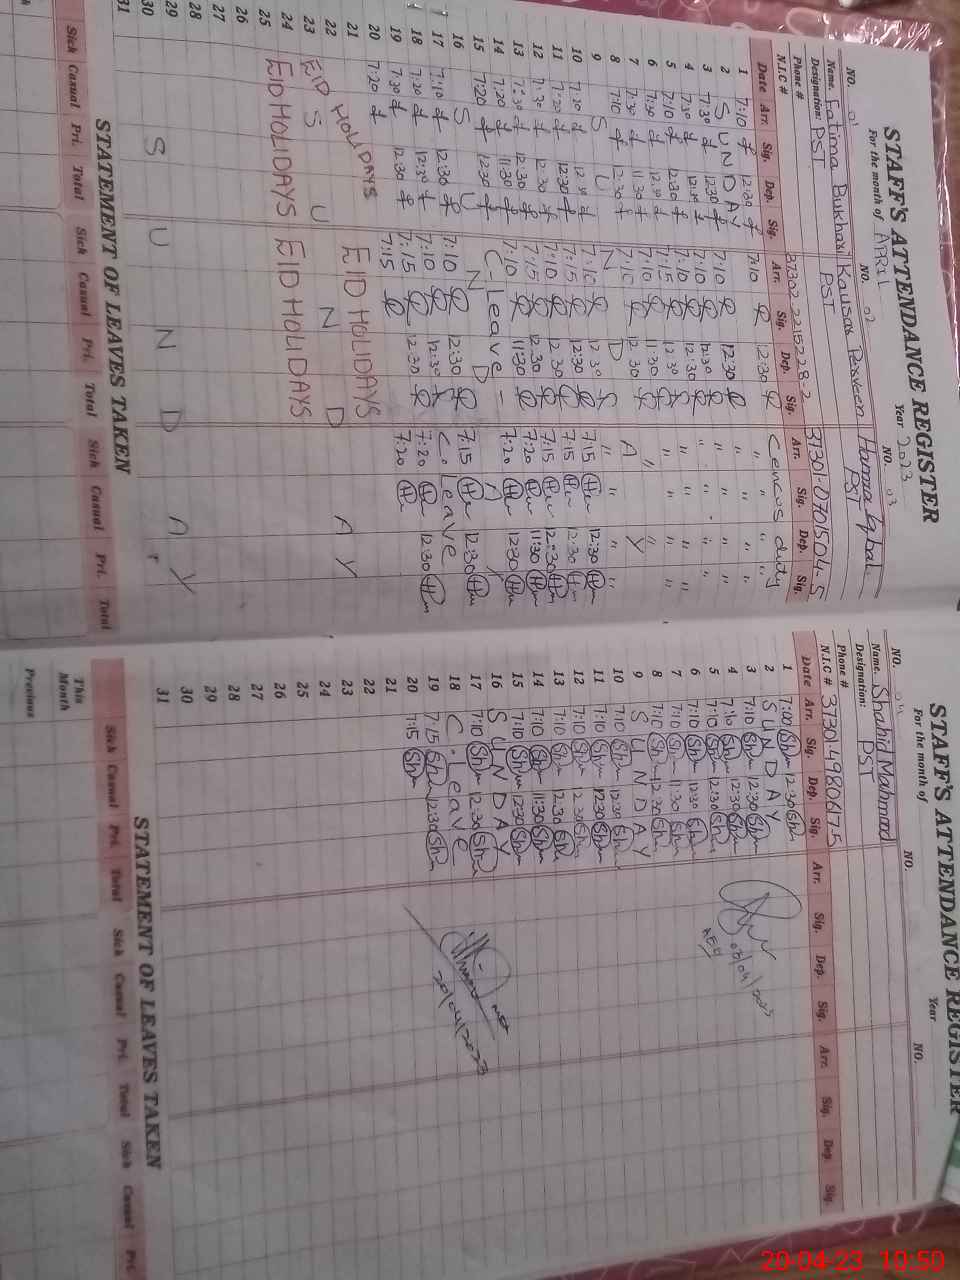 STAFF'S ATTENDANCE REGISTER
For the month of APRIL Year 2023
NO. 01 NO. 02 NO. 03
Name. Fatima Bukhari Kausar Parveen Homa Iqbal
Designation: PST PST PST
Phone #
N.I.C # 37302 2215228-2 31301-0701504-5
Date Arr. Sig. Dep. Sig. Arr. Sig. Dep. Sig. Arr. Sig. Dep. Sig.
1 7:10 12:30 7:10 12:30 Cencus duty
2 S U N D A Y
3 7:30 12:30 7:10 12:30
4 7:30 12:30 7:10 12:30
5 7:10 12:30 7:15 12:30
6 7:30 12:30 7:10 11:30
7 7:30 11:30 7:10 12:30
8 7:10 12:30
9 S U N D A Y
10 7:20 12:30 7:10 12:30 7:15 Hm 12:30 Hm
11 7:20 12:30 7:15 12:30 7:15 Hm 12:30 Hm
12 7:30 12:30 7:10 12:30 7:15 Hm 12:30 Hm
13 7:30 12:30 7:15 12:30 7:20 Hm 11:30 Hm
14 7:20 11:30 7:10 11:30 7:20 Hm 12:30 Hm
15 7:20 12:30 C-Leave-
16 S U N D A Y
17 7:10 12:30 7:10 12:30 7:15 Hm 12:30 Hm
18 7:20 12:30 7:10 12:30 C. Leave
19 7:30 12:30 7:15 12:30 7:20 Hm 12:30 Hm
20 7:20 7:15 7:20 Hm
21 EID HOLIDAYS EID HOLIDAYS
22
23 S U N D A Y
24 EID HOLIDAYS EID HOLIDAYS
25
26
27
28
29
30 S U N D A Y
31
STATEMENT OF LEAVES TAKEN
Sick Casual Pri. Total Sick Casual Pri. Total Sick Casual Pri. Total
STAFF'S ATTENDANCE REGISTER
For the month of Year
NO. 04 NO. NO.
Name. Shahid Mahmood
Designation: PST
Phone #
N.I.C # 31301-4980617-5
Date Arr. Sig. Dep. Sig. Arr. Sig. Dep. Sig. Arr. Sig. Dep. Sig.
1 7:00 Shm 12:30 Shm
2 S U N D A Y
3 7:10 Shm 12:30 Shm
4 7:10 Shm 12:30 Shm
5 7:10 Shm 12:30 Shm
6 7:10 Shm 12:30 Shm
7 7:10 Shm 11:30 Shm
8 7:10 Shm 12:30 Shm
9 S U N D A Y
10 7:10 Shm 12:30 Shm
11 7:10 Shm 12:30 Shm
12 7:10 Shm 12:30 Shm
13 7:10 Shm 12:30 Shm
14 7:10 Shm 11:30 Shm
15 7:10 Shm 12:30 Shm
16 S U N D A Y
17 7:10 Shm 12:30 Shm
18 C. Leave
19 7:15 Shm 12:30 Shm
20 7:15 Shm
21
22
23
24
25
26
27
28
29
30
31
20/04/2023
STATEMENT OF LEAVES TAKEN
Sick Casual Pri. Total Sick Casual Pri. Total Sick Casual Pri.
This Month
Previous
20-04-23 10:50